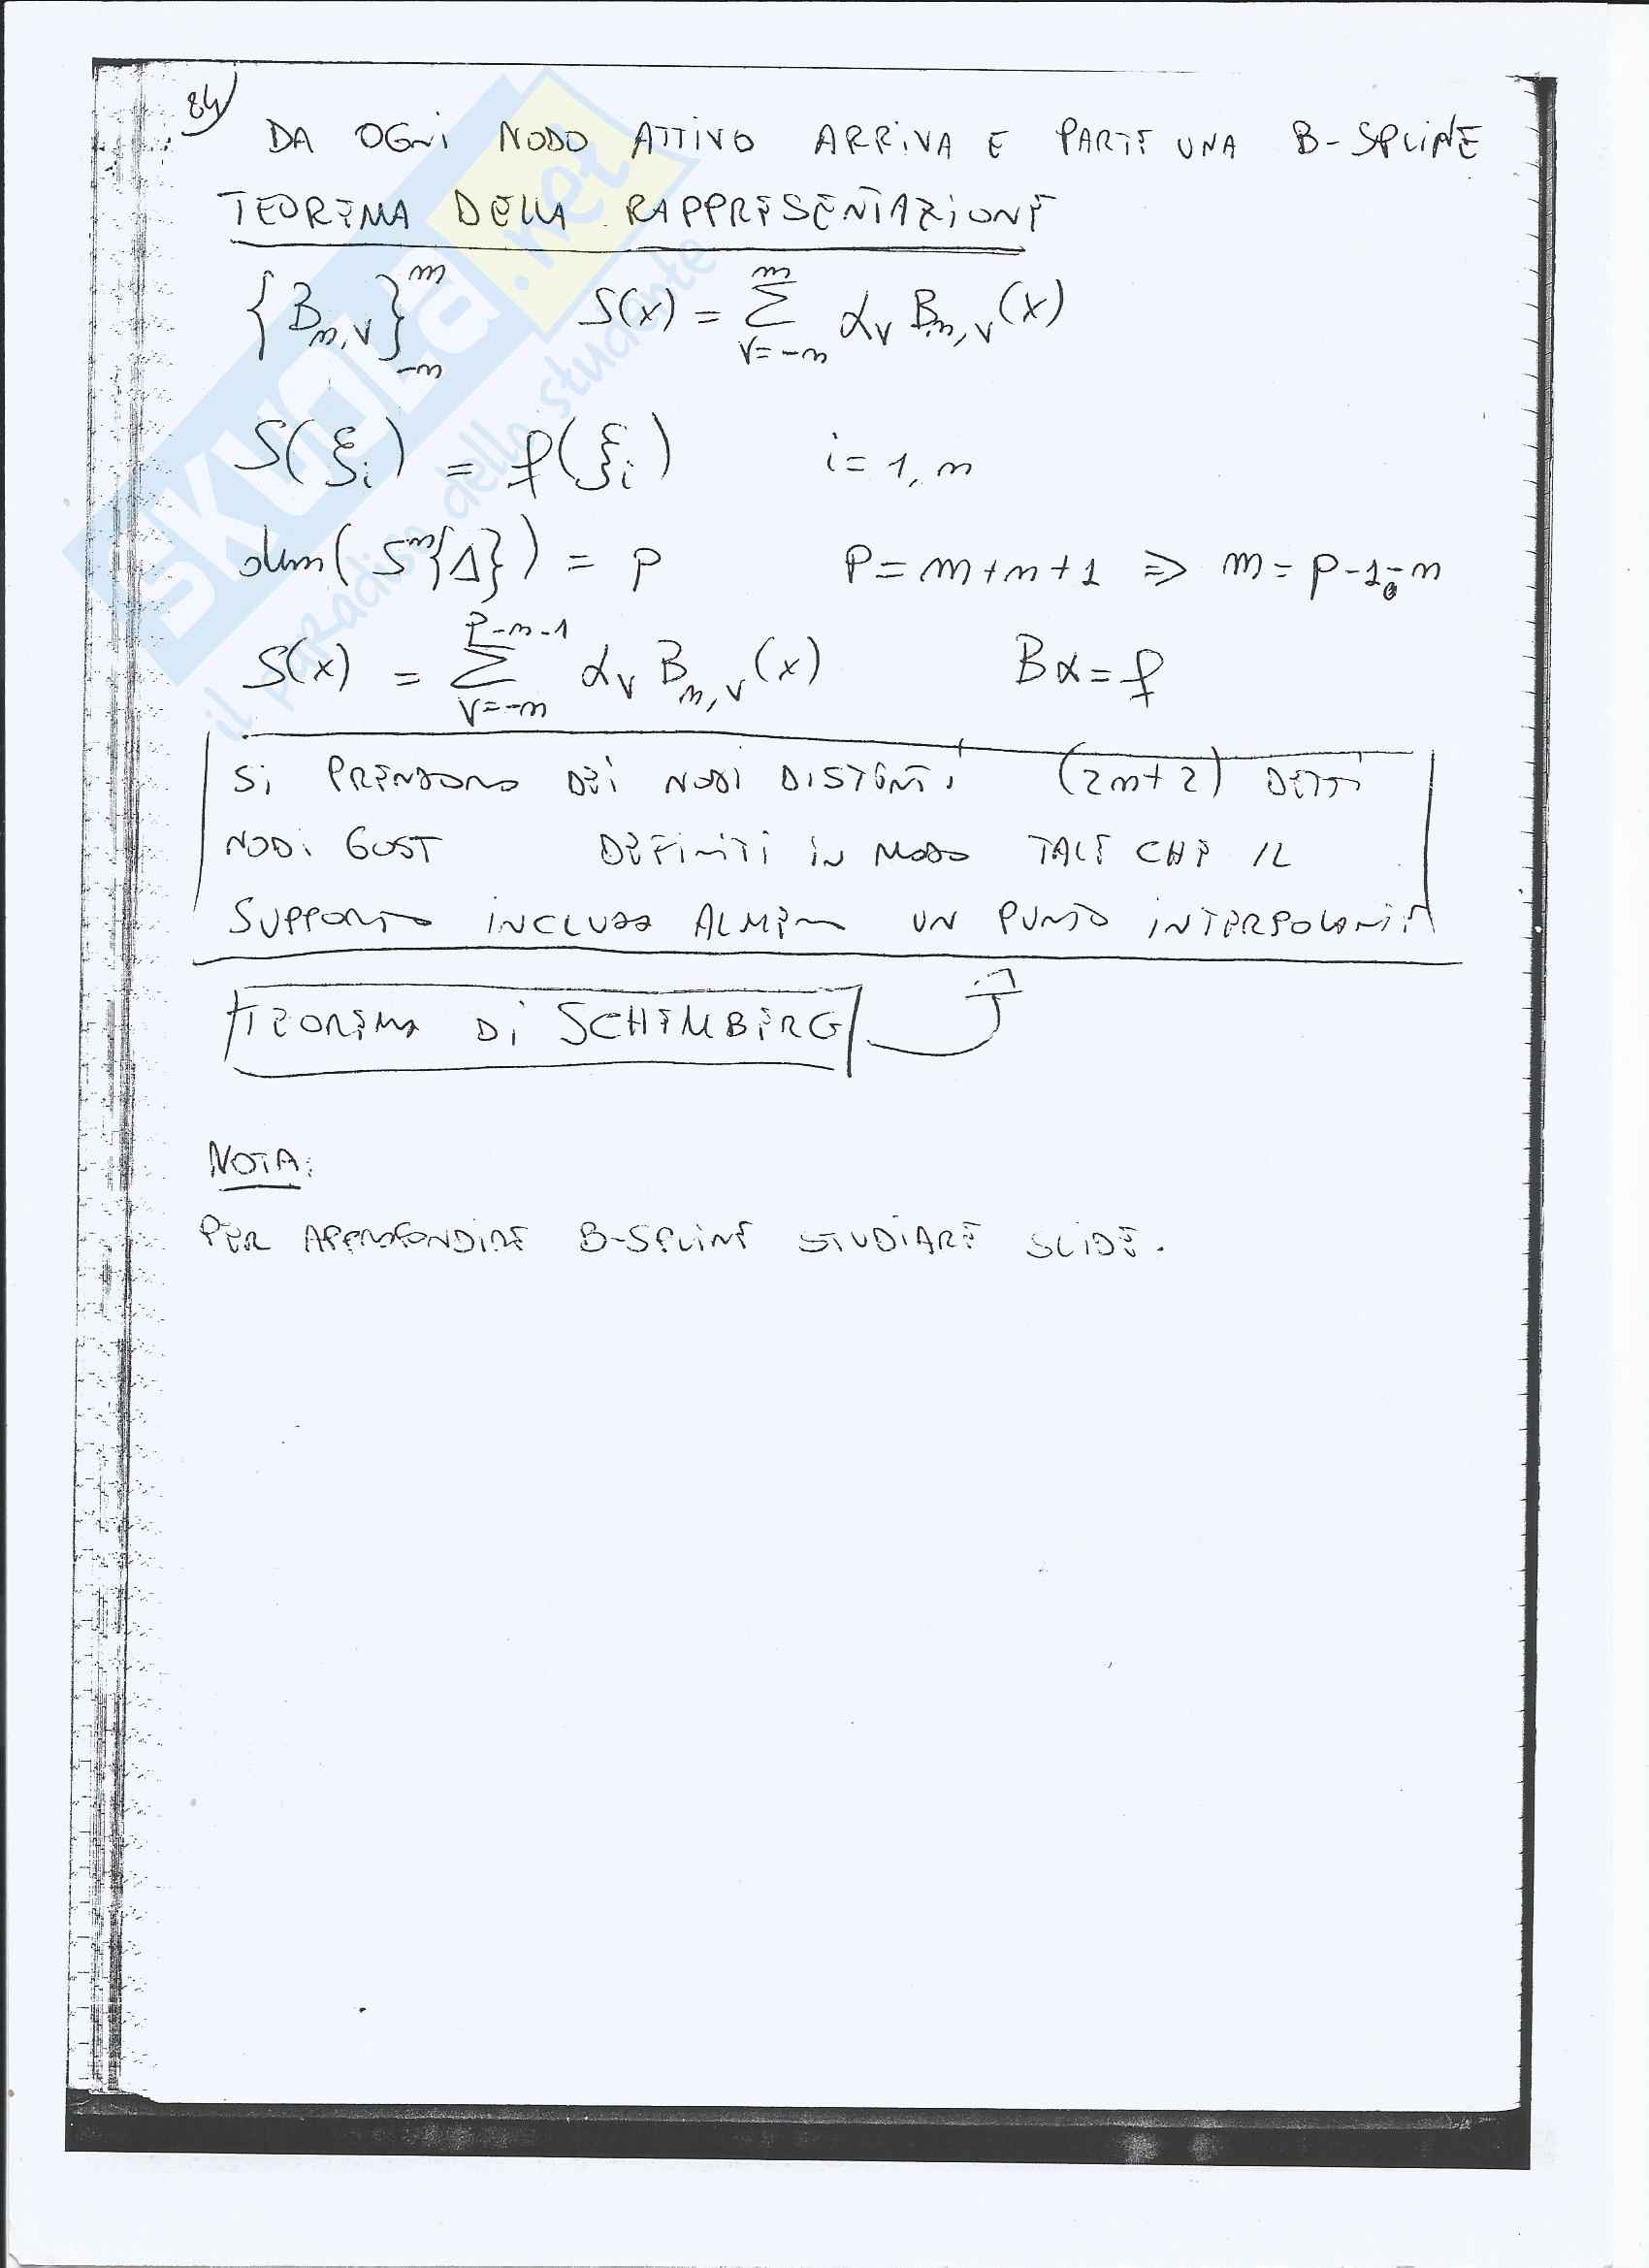 84)
DA OGNI NODO ATTIVO ARRIVA E PARTE UNA B-SPLINE
TEOREMA DELLA RAPPRESENTAZIONE
{B_{m,v}}_{-m}^{m}   S(x) = Σ_{v=-m}^{m} α_v B_{m,v}(x)
S(ξ_i) = f(ξ_i)   i=1,m
dim(S^m{Δ}) = p   P=m+m+1 ⇒ m=p-1-m
S(x) = Σ_{v=-m}^{p-m-1} α_v B_{m,v}(x)   Bα=f
SI PRENDONO DEI NODI DISTINTI (2m+2) DETTI
NODI GOST DEFINITI IN MODO TALE CHE IL
SUPPORTO INCLUDA ALMENO UN PUNTO INTERPOLANTE
TEOREMA DI SCHEMBERG
NOTA:
PER APPROFONDIRE B-SPLINE STUDIARE SLIDE.
SKUOLA.net
il paradiso dello studente